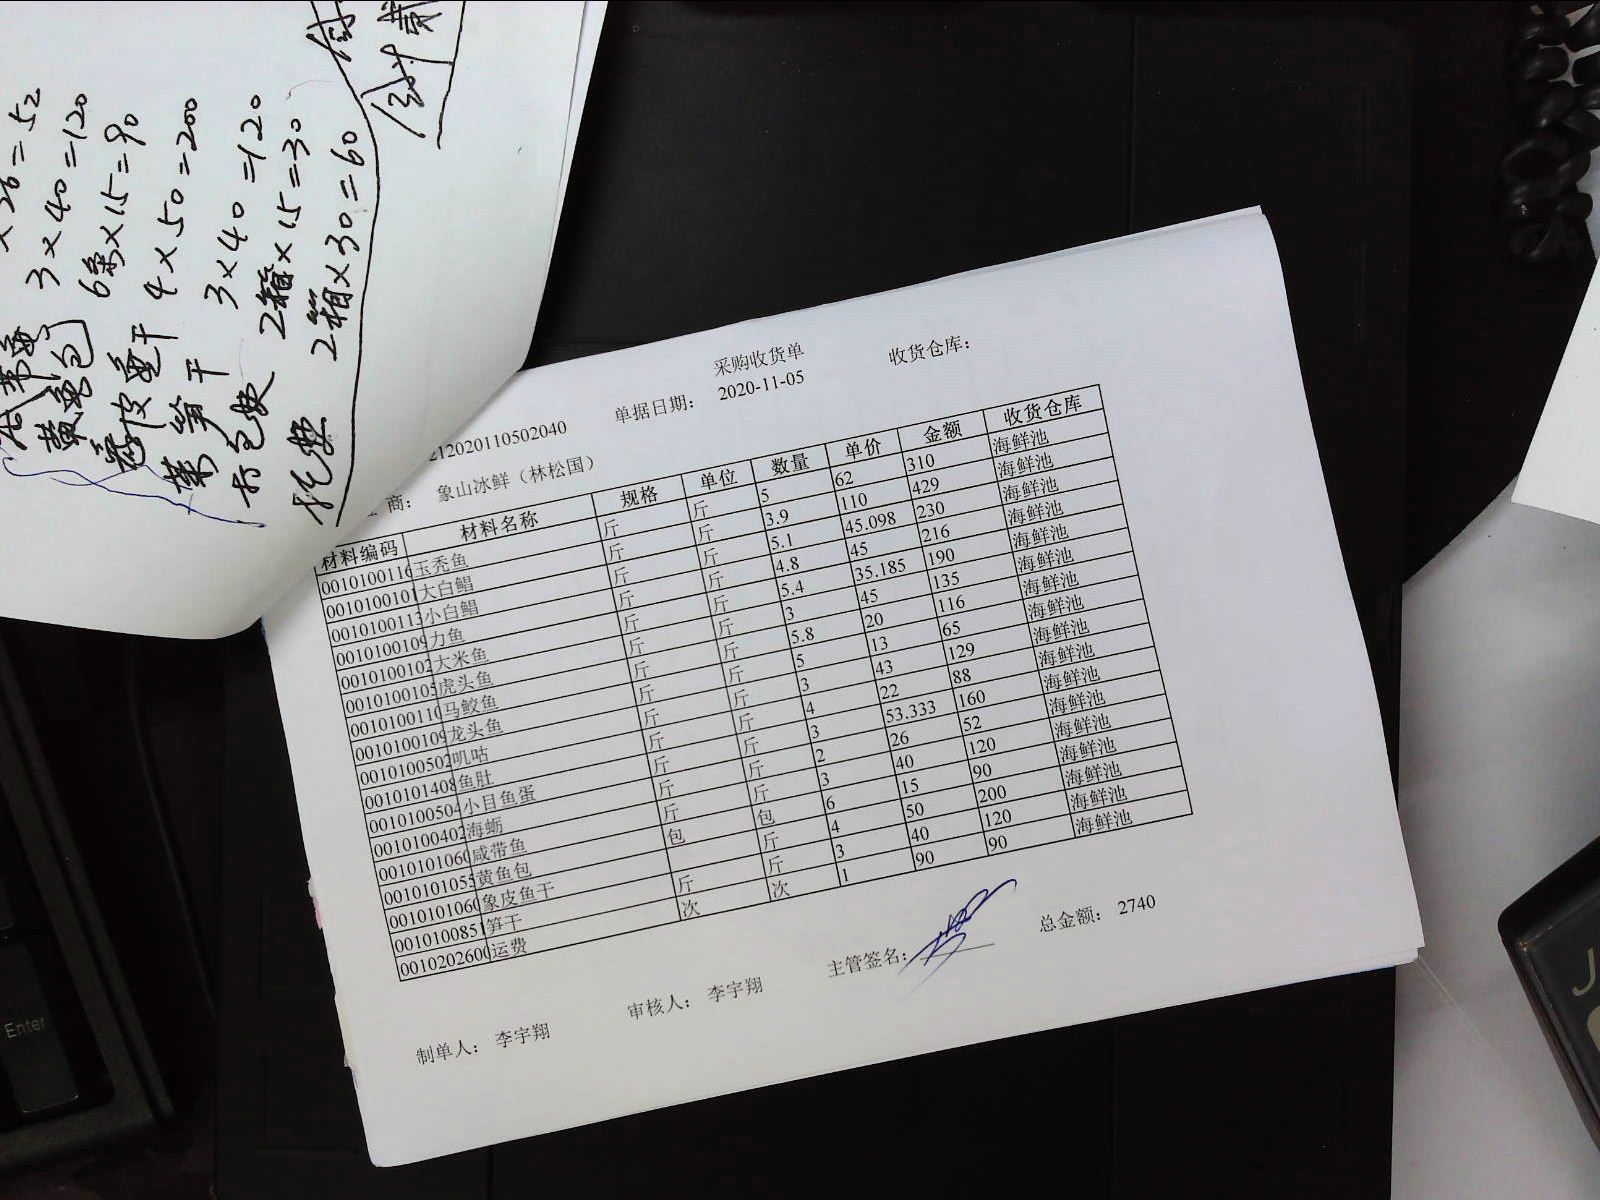 ×26=52
咸带鱼 3×40=120
黄鱼包 6条×15=90
皮鱼干 4×50=200
笋干 3×40=120
打包费 2箱×15=30
托费 2箱×30=60
合计
采购收货单
212020110502040 单据日期: 2020-11-05 收货仓库:
商: 象山冰鲜（林松国）
材料编码 材料名称 规格 单位 数量 单价 金额 收货仓库
0010100116 玉秃鱼 斤 斤 5 62 310 海鲜池
0010100101 大白鲳 斤 斤 3.9 110 429 海鲜池
0010100113 小白鲳 斤 斤 5.1 45.098 230 海鲜池
0010100109 力鱼 斤 斤 4.8 45 216 海鲜池
0010100102 大米鱼 斤 斤 5.4 35.185 190 海鲜池
0010100105 虎头鱼 斤 斤 3 45 135 海鲜池
0010100110 马鲛鱼 斤 斤 5.8 20 116 海鲜池
0010100109 龙头鱼 斤 斤 5 13 65 海鲜池
0010100502 叽咕 斤 斤 3 43 129 海鲜池
0010101408 鱼肚 斤 斤 4 22 88 海鲜池
0010100504 小目鱼蛋 斤 斤 3 53.333 160 海鲜池
0010100402 海蛎 斤 斤 2 26 52 海鲜池
0010101060 咸带鱼 斤 斤 3 40 120 海鲜池
0010101055 黄鱼包 包 包 6 15 90 海鲜池
0010101060 象皮鱼干 斤 4 50 200 海鲜池
0010100851 笋干 斤 斤 3 40 120 海鲜池
0010202600 运费 次 次 1 90 90 海鲜池
制单人: 李宇翔 审核人: 李宇翔 主管签名: 总金额: 2740
Enter
J